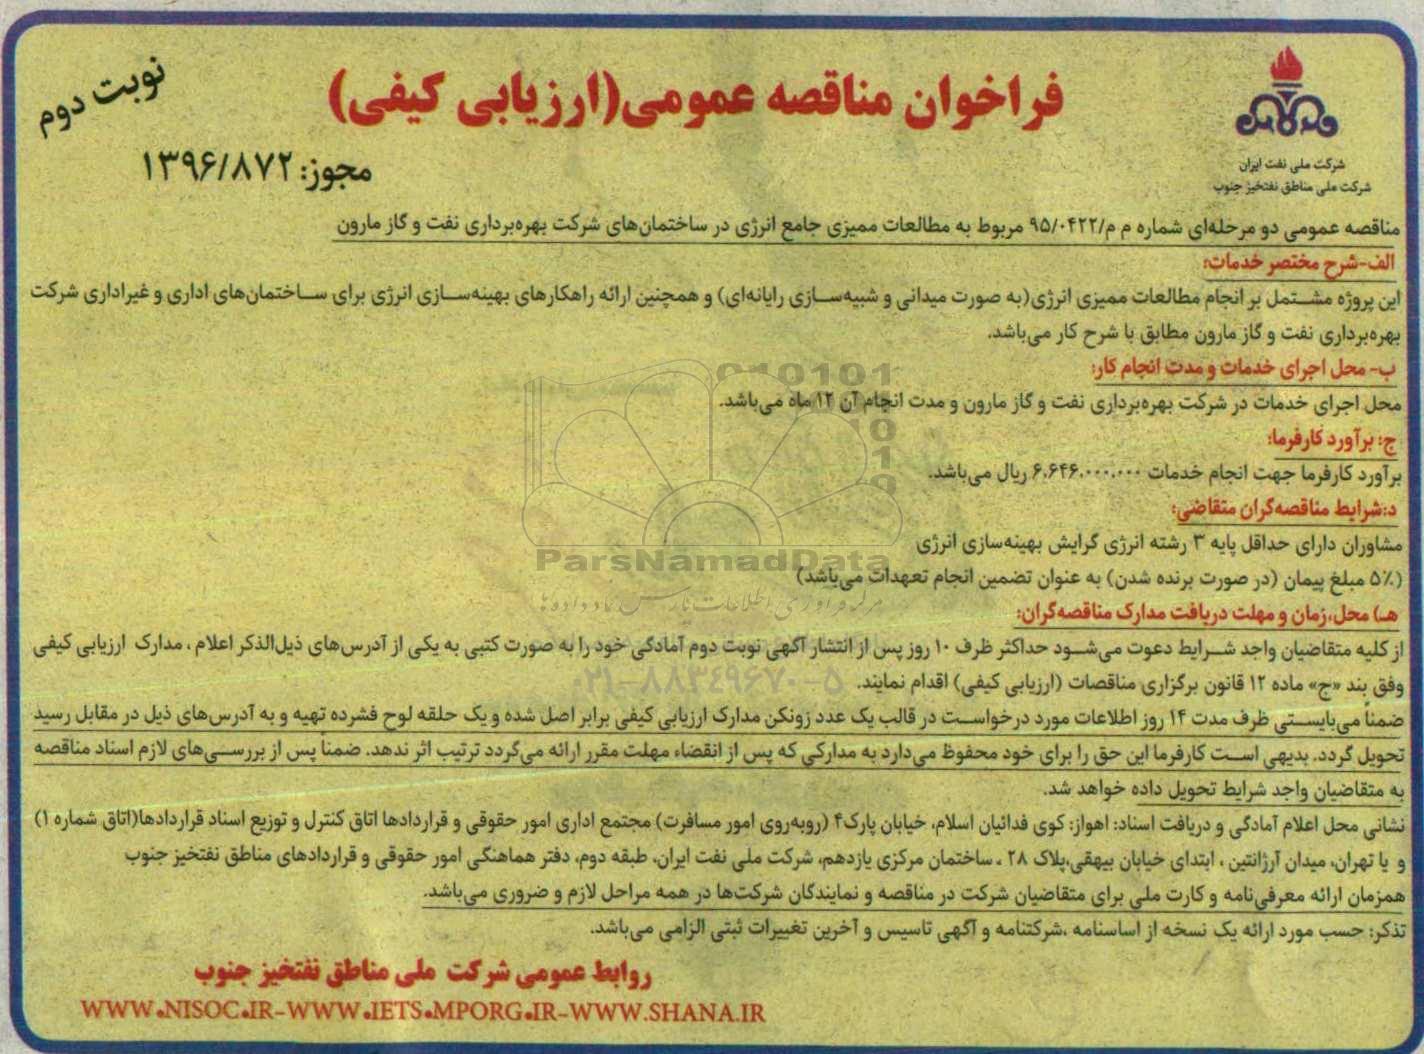 نوبت دوم
فراخوان مناقصه عمومی(ارزیابی کیفی)
مجوز: ۱۳۹۶/۸۷۲
شرکت ملی نفت ایران
شرکت ملی مناطق نفتخیز جنوب
مناقصه عمومی دو مرحله‌ای شماره م م/۹۵/۰۴۲۲ مربوط به مطالعات ممیزی جامع انرژی در ساختمان‌های شرکت بهره‌برداری نفت و گاز مارون
الف-شرح مختصر خدمات:
این پروژه مشتمل بر انجام مطالعات ممیزی انرژی(به صورت میدانی و شبیه‌سازی رایانه‌ای) و همچنین ارائه راهکارهای بهینه‌سازی انرژی برای ساختمان‌های اداری و غیراداری شرکت
بهره‌برداری نفت و گاز مارون مطابق با شرح کار می‌باشد.
ب- محل اجرای خدمات و مدت انجام کار:
محل اجرای خدمات در شرکت بهره‌برداری نفت و گاز مارون و مدت انجام آن ۱۲ ماه می‌باشد.
ج: برآورد کارفرما:
برآورد کارفرما جهت انجام خدمات ۶.۶۴۶.۰۰۰.۰۰۰ ریال می‌باشد.
د:شرایط مناقصه‌گران متقاضی:
مشاوران دارای حداقل پایه ۳ رشته انرژی گرایش بهینه‌سازی انرژی
(۵٪ مبلغ پیمان (در صورت برنده شدن) به عنوان تضمین انجام تعهدات می‌باشد)
هـ) محل،زمان و مهلت دریافت مدارک مناقصه‌گران:
از کلیه متقاضیان واجد شرایط دعوت می‌شود حداکثر ظرف ۱۰ روز پس از انتشار آگهی نوبت دوم آمادگی خود را به صورت کتبی به یکی از آدرس‌های ذیل‌الذکر اعلام ، مدارک ارزیابی کیفی
وفق بند «ج» ماده ۱۲ قانون برگزاری مناقصات (ارزیابی کیفی) اقدام نمایند.
ضمناً می‌بایستی ظرف مدت ۱۴ روز اطلاعات مورد درخواست در قالب یک عدد زونکن مدارک ارزیابی کیفی برابر اصل شده و یک حلقه لوح فشرده تهیه و به آدرس‌های ذیل در مقابل رسید
تحویل گردد. بدیهی است کارفرما این حق را برای خود محفوظ می‌دارد به مدارکی که پس از انقضاء مهلت مقرر ارائه می‌گردد ترتیب اثر ندهد. ضمناً پس از بررسی‌های لازم اسناد مناقصه
به متقاضیان واجد شرایط تحویل داده خواهد شد.
نشانی محل اعلام آمادگی و دریافت اسناد: اهواز: کوی فدائیان اسلام، خیابان پارک۴ (روبه‌روی امور مسافرت) مجتمع اداری امور حقوقی و قراردادها اتاق کنترل و توزیع اسناد قراردادها(اتاق شماره ۱)
و یا تهران، میدان آرژانتین ، ابتدای خیابان بیهقی،پلاک ۲۸ ، ساختمان مرکزی یازدهم، شرکت ملی نفت ایران، طبقه دوم، دفتر هماهنگی امور حقوقی و قراردادهای مناطق نفتخیز جنوب
همزمان ارائه معرفی‌نامه و کارت ملی برای متقاضیان شرکت در مناقصه و نمایندگان شرکت‌ها در همه مراحل لازم و ضروری می‌باشد.
تذکر: حسب مورد ارائه یک نسخه از اساسنامه ،شرکتنامه و آگهی تاسیس و آخرین تغییرات ثبتی الزامی می‌باشد.
روابط عمومی شرکت ملی مناطق نفتخیز جنوب
WWW.NISOC.IR-WWW.IETS.MPORG.IR-WWW.SHANA.IR
ParsNamadData
۰۲۱-۸۸۳۴۹۶۷۰-۵